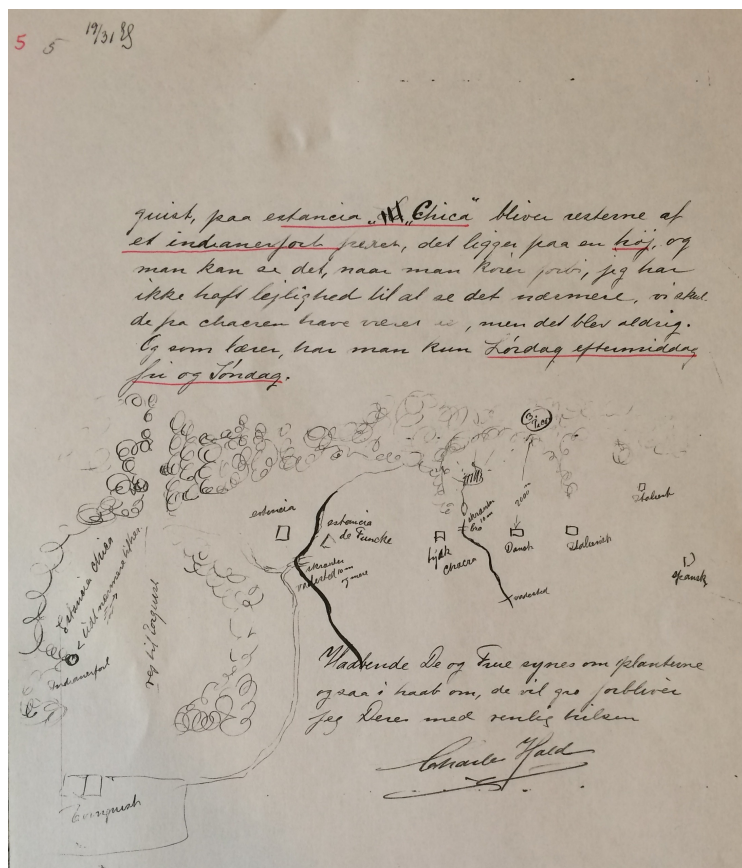 5 5 19/31
quist, paa estancia „Chica" bliver resterne af
et indianerfort , det ligger paa en høj, og
man kan se det, naar man kører forbi, jeg har
ikke haft lejlighed til at se det nærmere, vi skul
de pa chacren have været , men det blev aldrig.
Og som lærer, har man kun Lørdag eftermiddag
fri og Søndag.
estancia
estancia
de Funcke
skrænter
vandsted 10 m
og mere
Tysk
Chacra
skrænter
10 m
2000 m
Dansk
Italiensk
Italiensk
Spansk
vandsted
Estancia Chica
Indianerfort
vej til
Tornquist
Haabende De og Frue synes om planterne
og saa i haab om, de vil gro forbliver
jeg Deres med venlig hilsen
Charles Hald